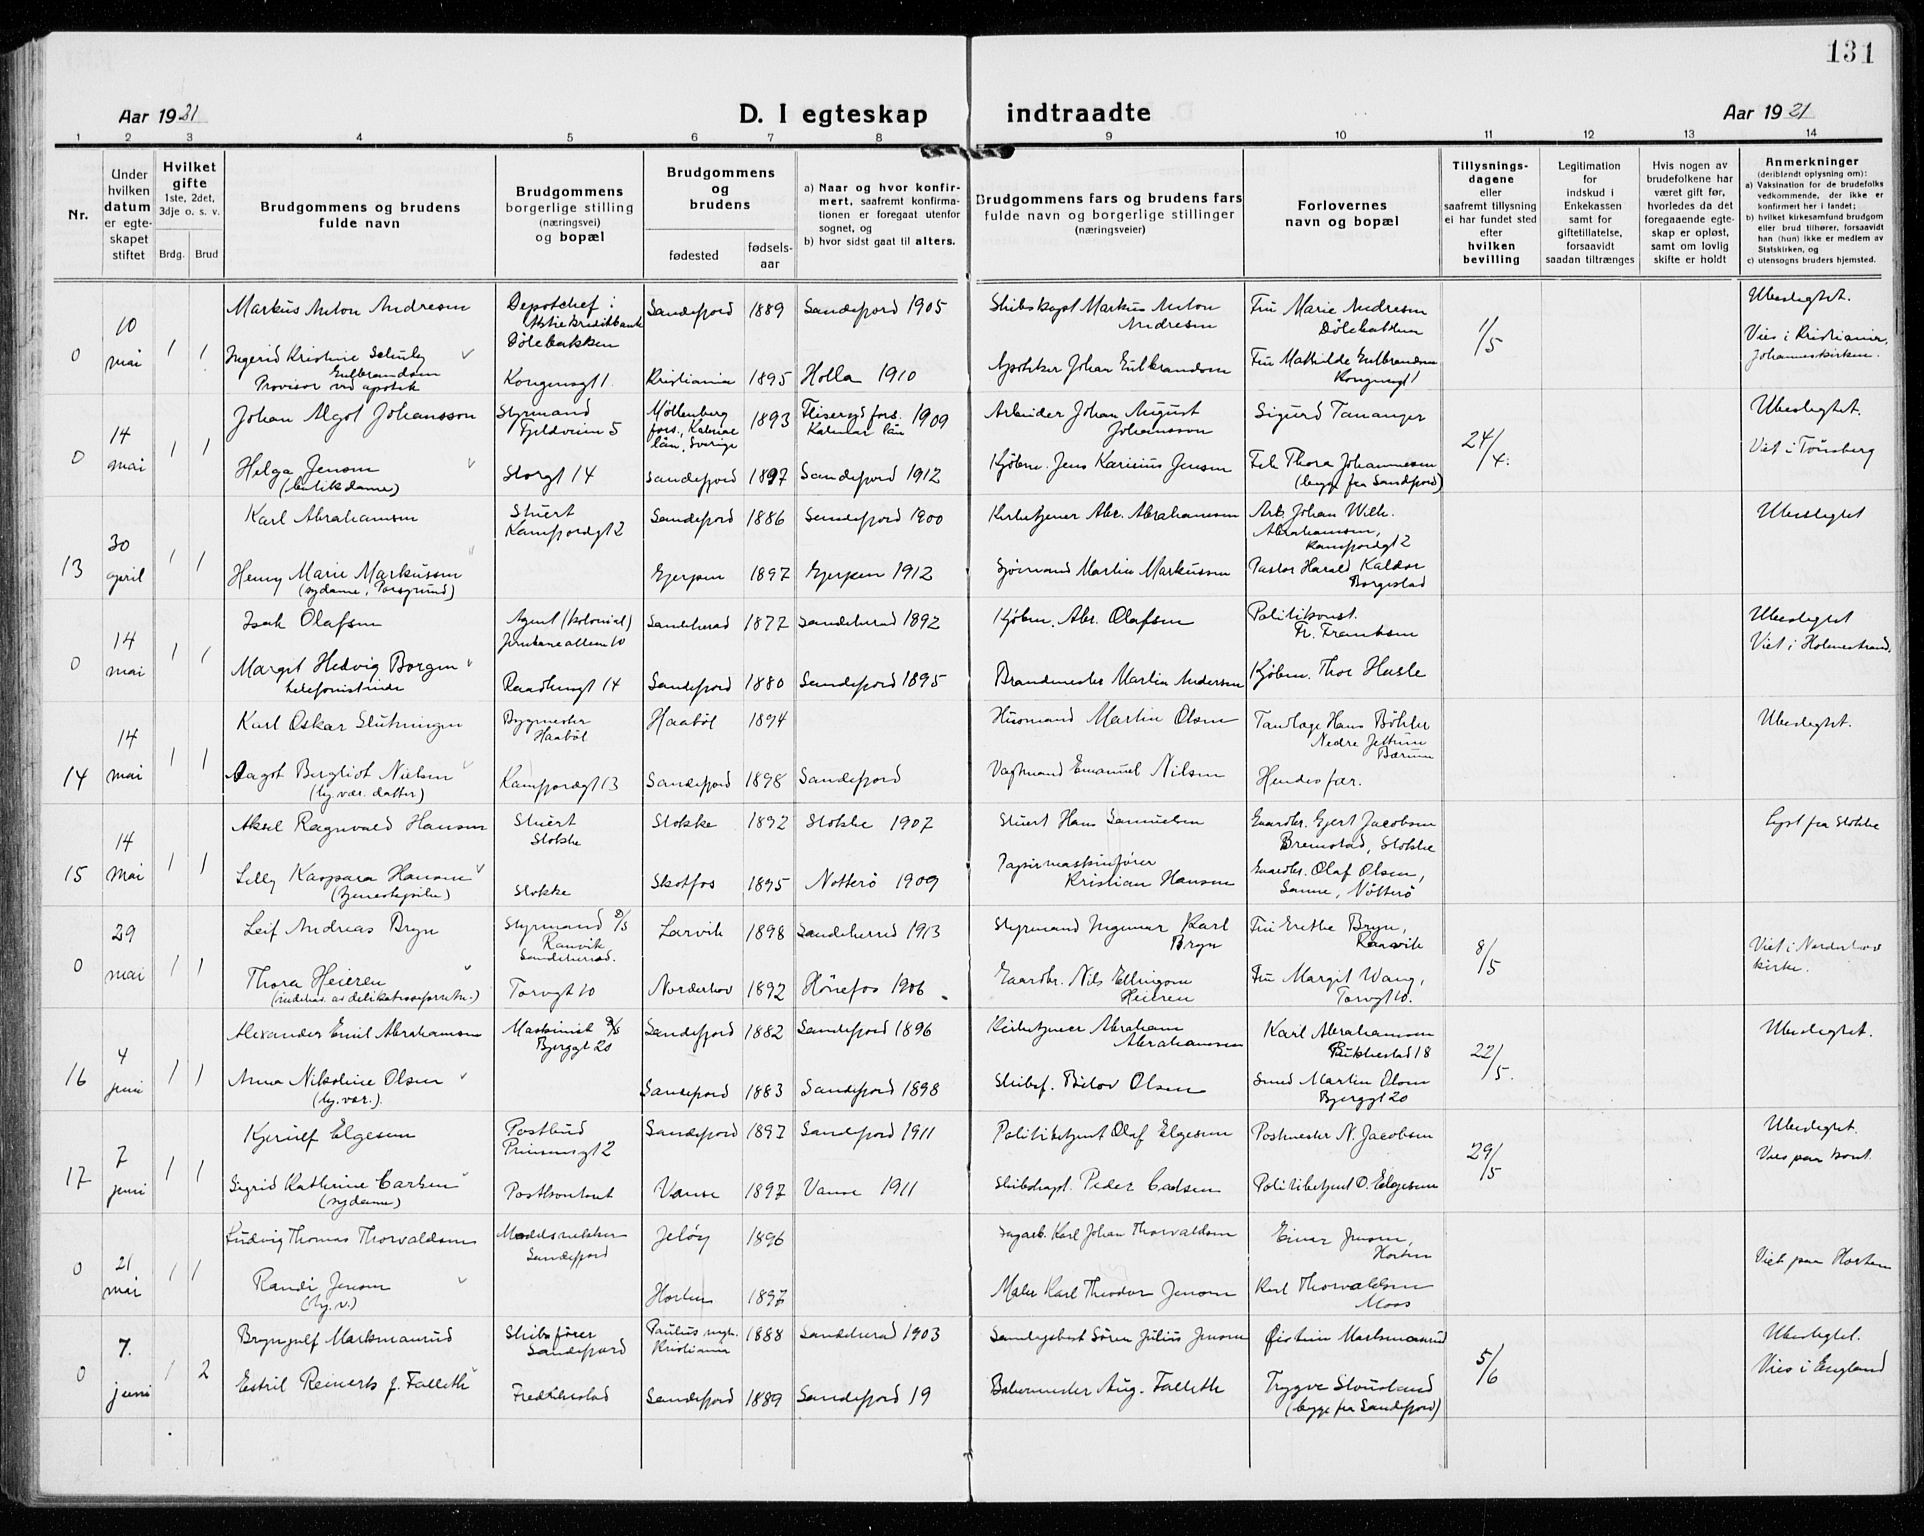 131
Aar 1921
D. I egteskap indtraadte
Aar 1921
1 2 3 4 5 6 7 8 9 10 11 12 13 14
Nr.
Under hvilken datum er egteskapet stiftet
Hvilket gifte 1ste, 2det, 3dje o. s. v.
Brdg. Brud
Brudgommens og brudens fulde navn
Brudgommens borgerlige stilling (næringsvei) og bopæl
Brudgommens og brudens
fødested
fødselsaar
a) Naar og hvor konfirmert, saafremt konfirmationen er foregaat utenfor sognet, og
b) hvor sidst gaat til alters.
Brudgommens fars og brudens fars fulde navn og borgerlige stillinger (næringsveier)
Forlovernes navn og bopæl
Tillysningsdagene eller saafremt tillysning ei har fundet sted efter hvilken bevilling
Legitimation for indskud i Enkekassen samt for giftetillatelse, forsaavidt saadan tiltrænges
Hvis nogen av brudefolkene har været gift før, hvorledes da det foregaaende egteskap er opløst, samt om lovlig skifte er holdt
Anmerkninger (deriblendt oplysning om):
a) Vaksination for de brudefolks vedkommende, der ikke er konfirmert her i landet;
b) hvilket kirkesamfund brudgom eller brud tilhører, forsaavidt han (hun) ikke er medlem av Statskirken, og
c) utensogns bruders hjemsted.
0 10 mai 1 1
Markus Anton Andresen
Depotchef i Aktiekreditbank Dölebakken
Sandefjord 1889 Sandefjord 1905
Skibskapt Markus Anton Andresen
Fru Marie Andresen Dölebakken
1/5
Ubeslegtet.
Vies i Kristiania, Johanneskirken.
Ingerid Kristine Schuly Gulbrandsen
Provisor ved apotek
Kongensgt 1.
Kristiania 1895 Holla 1910
Apotheker Johan Gulbrandsen
Fru Mathilde Gulbrandsen Kongensgt 1
0 14 mai 1 1
Johan Algot Johansson
Styrmand Fjeldveien 5
Möllenberg fors., Kalmar län, Sverige 1893
Fliseryd fors. Kalmar län 1909
Arbeider Johan August Johansson
Sigurd Tananger
24/4.
Ubeslegtet.
Viet i Tönsberg
Helga Jensen (butikdame)
Storgt 14
Sandefjord 1897 Sandefjord 1912
Kjöbm. Jens Karinius Jensen
Frk Thora Johannesen (begge fra Sandefjord)
13 30 april 1 1
Karl Abrahamsen
Stuert Kamfjordgt 2
Sandefjord 1886 Sandefjord 1900
Kirketjener Abr. Abrahamsen
Arb. Johan Wilh. Abrahamsen, Kamfjordgt 2
Ubeslegtet
Henny Marie Markussen (sydame, Porsgrund)
Gjerpen 1897 Gjerpen 1912
Sjömand Martin Markussen
Pastor Harald Kaldor Borgestad
0 14 mai 1 1
Isak Olafsen
Agent (kolonial) Jernbanealleen 10
Sandeherad 1877 Sandeherad 1892
Kjöbm. Abr. Olafsen
Politikonst. Fr. Frantzen
Ubeslegtet
Viet i Holmestrand.
Margit Hedvig Borgen telefonistinde
Raadhusgt 14
Sandefjord 1880 Sandefjord 1895
Brandmester Martin Andersen
Kjöbm. Thor Hasle
14 14 mai 1 1
Karl Oskar Slutningen
Bygmester Haaböl
Haaböl 1894
Husmand Martin Olsen
Tandlæge Hans Böhler Nedre Jettum Bærum
Ubeslegtet.
Aagot Bergliot Nielsen (hj. vær. datter)
Kamfjordgt 13
Sandefjord 1898 Sandefjord
Vagtmand Emanuel Nilsen
Hendes far.
15 14 mai 1 1
Aksel Ragnvald Hansen
Stuert Stokke
Stokke 1892 Stokke 1907
Stuert Hans Samuelsen
Gaardbr. Gjert Jacobsen Bremstad, Stokke
Lyst fra Stokke
Lilly Kaspara Hansen (tjenestepike)
Stokke
Skotfos 1895 Nötterö 1909
Papirmaskinförer Kristian Hansen
Gaardbr. Olaf Olsen, Sanne, Nötterö
0 29 mai 1 1
Leif Andreas Bryn
Styrmand D/S Ranvik Sandeherad.
Larvik 1898 Sandeherred 1913
Styrmand Ingemar Karl Bryn
Fru Grethe Bryn, Ranvik
8/5
Viet i Norderhov kirke.
Thora Heieren (indehav. av delikatesseforretn.)
Torvgt 10
Norderhov 1892 Hönefos 1906
Gaardbr. Nils Ellingsen Heieren
Fru Margit Wang, Torvgt 10.
16 4 juni 1 1
Alexander Emil Abrahamsen
Maskinist D/S Bjerggt 20
Sandefjord 1882 Sandefjord 1896
Kirketjener Abraham Abrahamsen
Karl Abrahamsen Bukkestad 18
22/5.
Ubeslegtet.
Anna Nikoline Olsen (hj. vær.).
Sandefjord 1883 Sandefjord 1898
Skibsf. Bölov Olsen
Smed Martin Olsen Bjerggt 20
17 7 juni 1 1
Kjerulf Elgesem
Postbud Prinsensgt 2
Sandefjord 1897 Sandefjord 1911
Politibetjent Olaf Elgesem
Postmester N. Jacobsen
29/5
Ubeslegtet.
Vies paa kont.
Sigrid Kathrine Carlsen (sydame)
Postkontoret
Vanse 1897 Vanse 1911
Skibskapt. Peder Carlsen
Politibetjent O. Elgesem
0 21 mai 1 1
Ludvig Thomas Thorvaldsen
Modelsnekker Sandefjord
Jelöy 1896
Sagarb. Karl Johan Thorvaldsen
Einar Jensen, Horten
Viet paa Horten
Randi Jensen (hj. v.)
Horten 1897
Maler Karl Theodor Jensen
Karl Thorvaldsen Moss
0 7. juni 1 2
Brynjulf Markmanrud
Skibsförer Sandefjord
Paulus mgh. Kristiania 1888 Sandeherad 1903
Samlagsbest Sören Julius Jensen
Öistein Markmanrud
5/6
Ubeslegtet.
Vies i England
Estril Reinerts f. Falleth
Fredrikstad
Sandefjord 1889 Sandefjord 19
Bakermester Aug. Falleth
Trygve Stousland (begge fra Sandefjord)